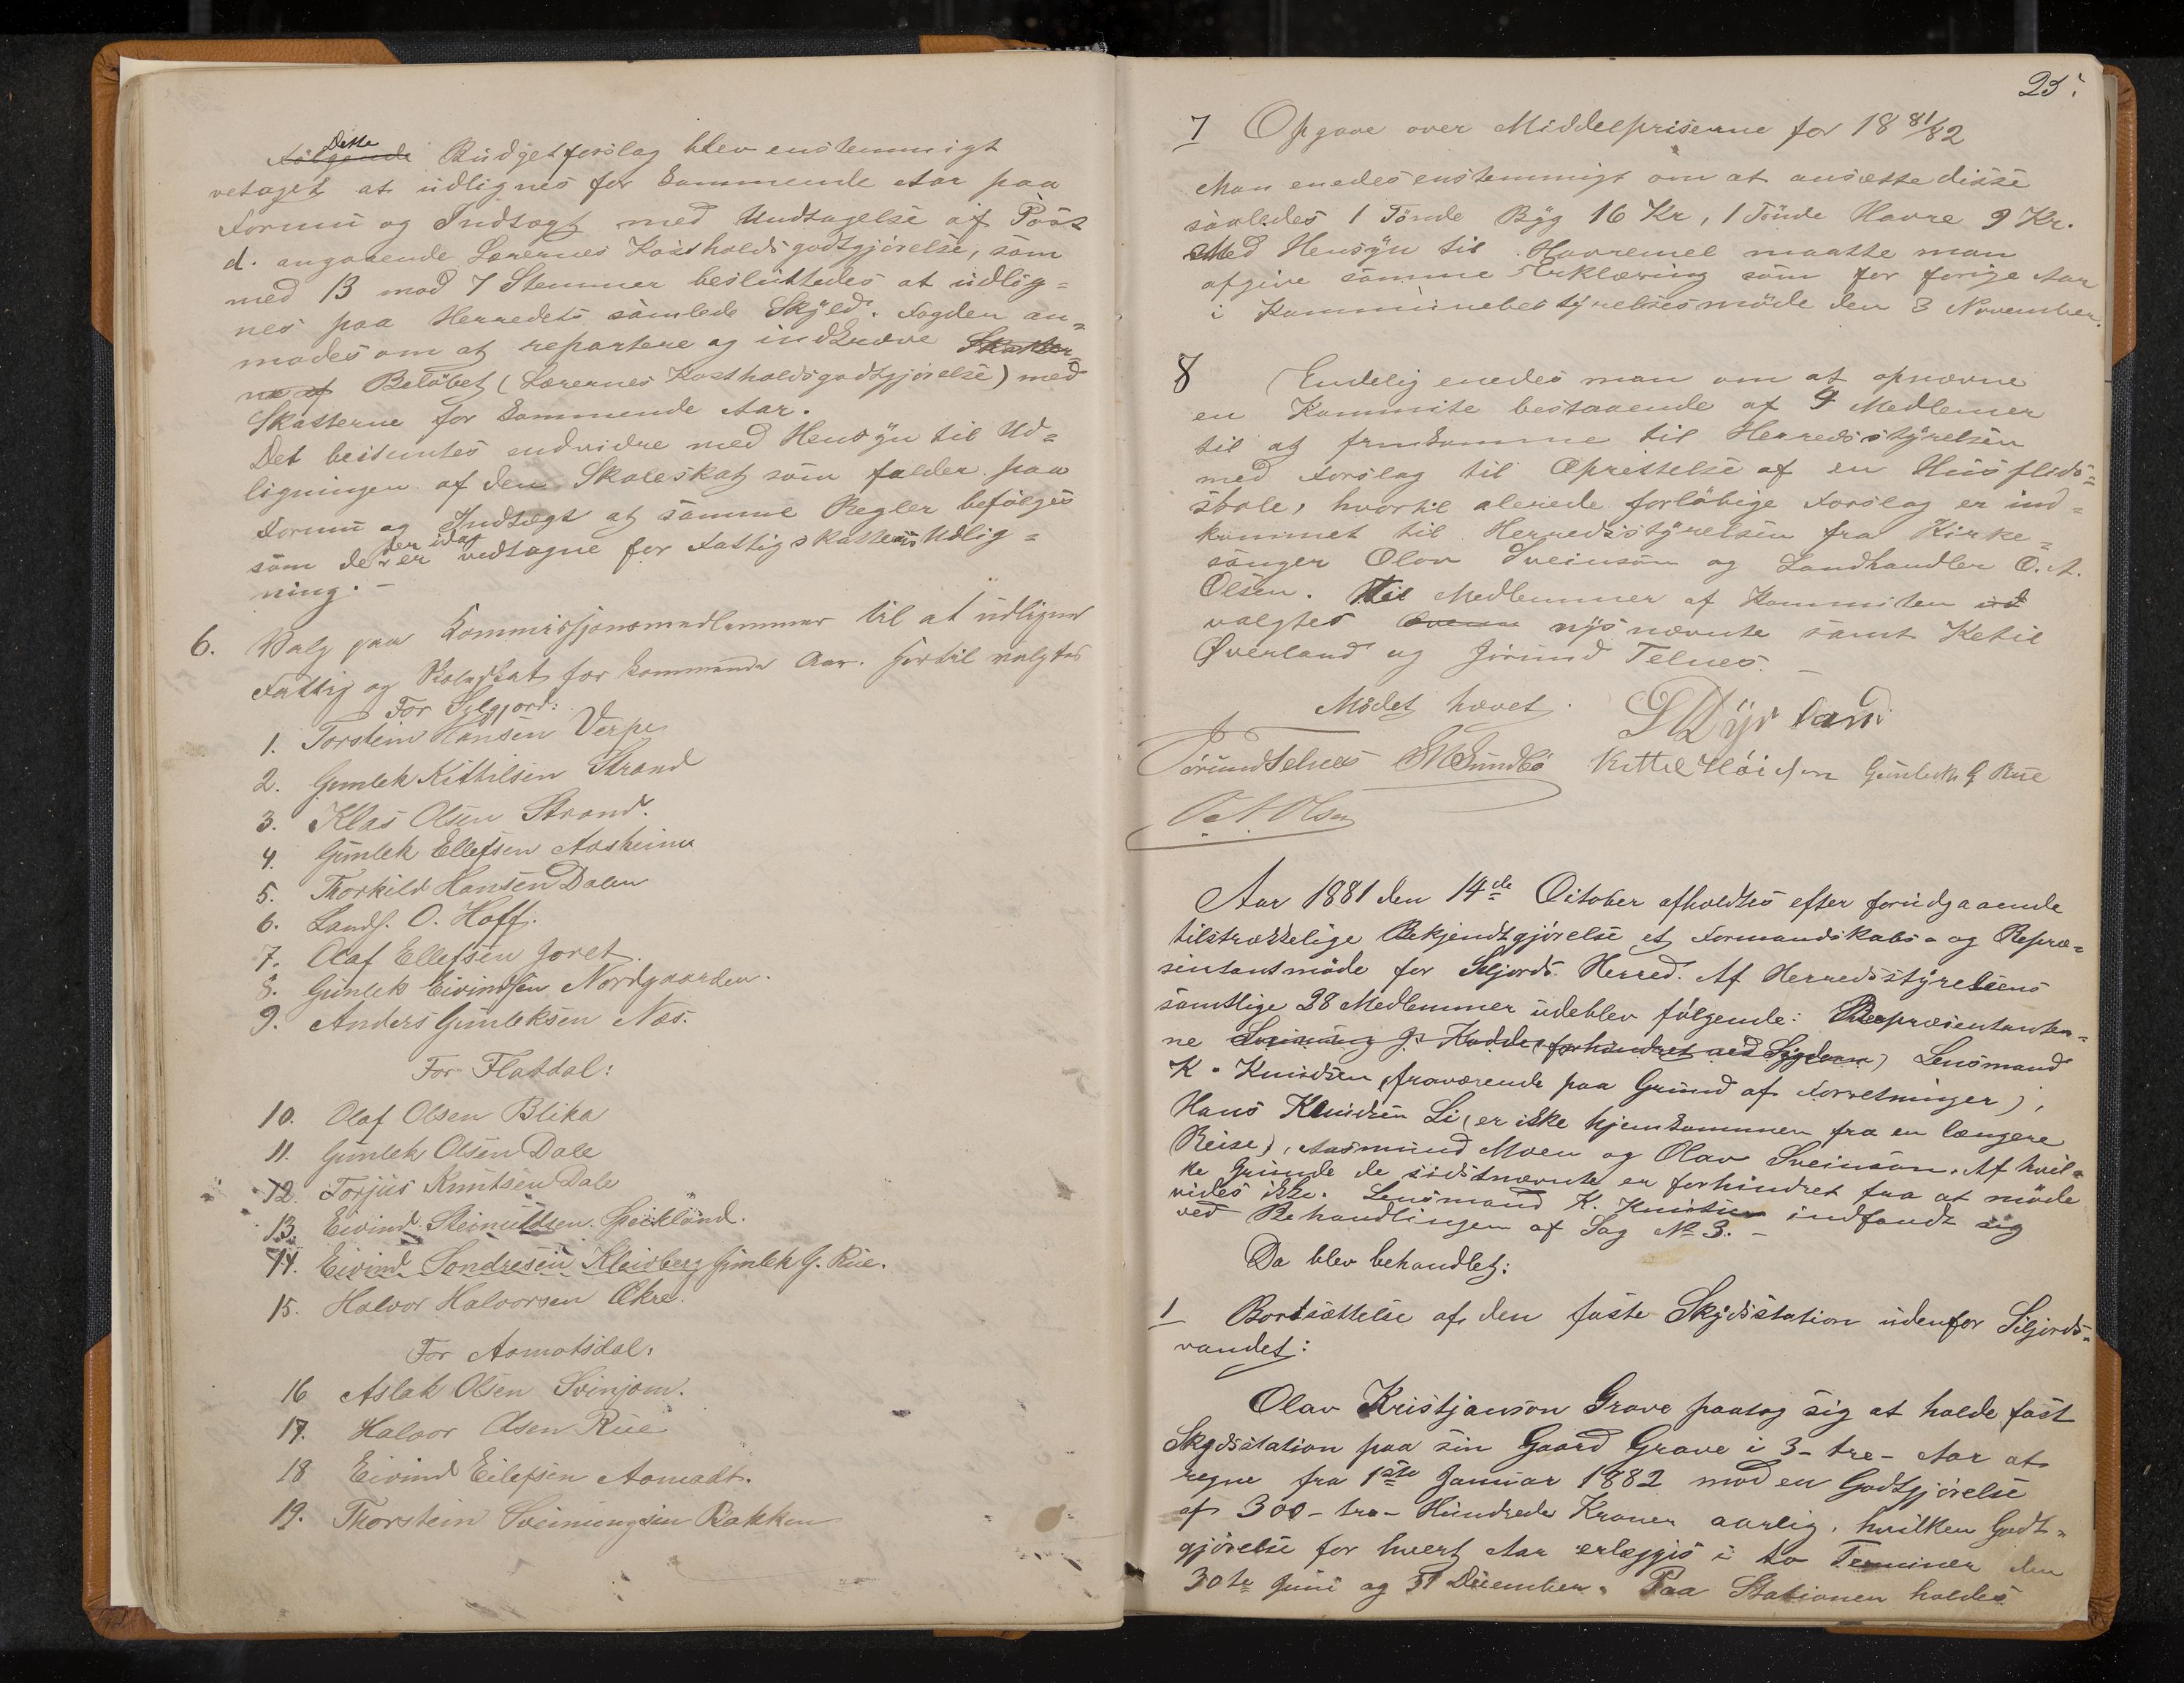 Dette
Følgende Budgetforslag blev enstemmigt
vetaget at udlignes for kommende Aar paa
Formu og Indtægt med Undtagelse af Post
d. angaaende Lærernes Kostholdsgodtgjørelse, som
med 13 mod 7 Stemmer besluttedes at udlig=
nes paa Herredets samlede Skyld. Fogden an=
modes om at repartere og indkræve Skatter-
ne af Beløbet (Lærernes Kostholdsgodtgjørelse) med
Skatterne for kommende Aar.
Det bestemtes endvidre med Hensyn til Ud=
ligningen af den Skoleskat som falder paa
Formu og Indtægt at samme Regler befølges
som der er vedtagne for Fattigskattens Udlig=
ning. -
6. Valg paa Kommissjonsmedlemmer til at udligne
Fattig og Skoleskat for kommende Aar. Hertil valgtes
For Selgjord:
1. Torstein Hansen Verpe
2. Gunlek Kittilsen Strand
3. Klas Olsen Strand.
4. Gunlek Ellefsen Aasheim
5. Thorkild Hansen Dalen
6. Landh. O. Hoff.
7. Olaf Ellefsen Joret.
8. Gunlek Eivindsen Nordgaarden.
9. Anders Gunleksen Næs.
For Flatdal:
10. Olaf Olsen Blika
11. Gunlek Olsen Dale
12. Torjus Knutsen Dale
13. Eivind Steinuldsen Speiklånd.
14. Eivind Sondresen Kleivberg Gunlek G. Rue.
15. Halvor Halvorsen Økre.
For Aamotsdal:
16 Aslak Olsen Svinjom.
17. Halvor Olsen Rue
18 Eivind Eilefsen Aamodt.
19. Thorstein Sveinungsen Bakken
25.
7 Opgave over Middelpriserne for 18 81/82
Man enedes enstemmigt om at ansætte disse
saaledes 1 Tønde Byg 16 Kr, 1 Tønde Havre 9 Kr.
Med Hensyn til Havremel maatte man
afgive samme Erklæring som for forige Aar
i Kommunebestyrelsesmøde den 3 November.
8 Endelig enedes man om at opnævne
en Kommite bestaaende af 4 Medlemer
til at fremkomme til Herredsstyrelsen
med Forslag til Oprettelse af en Husflids=
skole, hvortil alerede forløbige Forslag er ind=
kommet til Herredsstyrelsen fra Kirke=
sanger Olav Sveinson og Landhandler O. A.
Olsen. Til Medlemmer af Kommiten
valgtes nysnævnte samt Ketil
Øverland og Jørund Telnes. -
Mødet hævet.
S Dyrland
Jørund Telnes SM Sundbø Kittel Høidsen Gunleik G Rue
O. A. Olsen
Aar 1881 den 14de October afholdtes efter forudgaaende
tilstrækkelige Bekjendtgjørelse et Formandskabs- og Repræ=
sentantmøde for Seljords Herred. Af Herredsstyrelsens
samtlige 28 Medlemmer udeblev følgende: Repræsentanter=
ne Sveinung Js Kodde (forhindret ved Sygdom) Lensmand
K. Knudsen (fraværende paa Grund af Forretninger),
Hans Knudsen Li (er ikke hjemkommen fra en længere
Reise), Aasmund Moen og Olav Sveinson. Af hvil=
ke Grunde de sidstnævnte er forhindret fra at møde
vides ikke. Lensmand K. Knudsen indfandt sig
ved Behandlingen af Sag No 3. -
Da blev behandlet:
1 Bortsættelse af den faste Skydsstation udenfor Seljords=
vandet:
Olav Kristjanson Grave paatog sig at holde fast
Skydsstation paa sin Gaard Grave i 3 - tre - Aar at
regne fra 1ste Januar 1882 mod en Godtgjørelse
af 300 - tre - Hundrede Kroner aarlig, hvilken Godt=
gjørelse for hvert Aar erlægges i to Terminer den
30te Juni og 31 December. Paa Stationen holdes